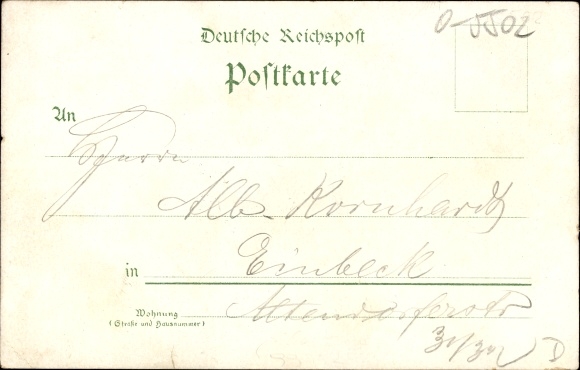 O-5502
Deutsche Reichspost
Postkarte
An
Herrn
Alb. Kornhardt
in Einbeck
Wohnung
(Straße und Hausnummer)
Altendorferstr
D